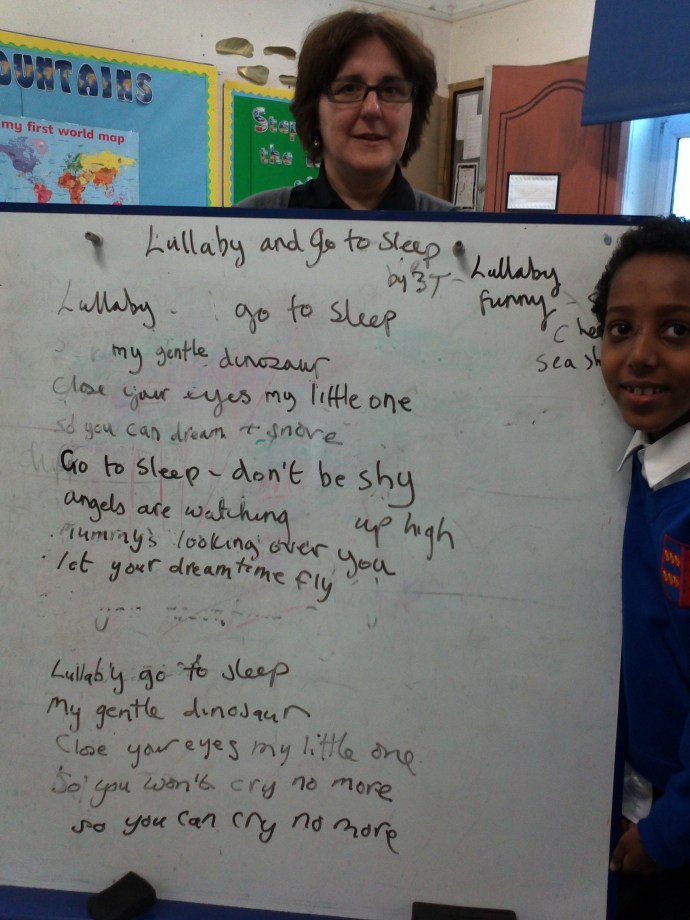 OUNTAINS
my first world map
Stop
the
Lullaby and go to sleep
by 3T - Lullaby
funny
Chee
sea sh
Lullaby go to sleep
my gentle dinozaur
Close your eyes my little one
so you can dream + snore
Go to sleep - don't be shy
angels are watching up high
mummy's looking over you
let your dreamtime fly
Lullaby go to sleep
My gentle dinosaur
Close your eyes my little one
So you won't cry no more
so you can cry no more